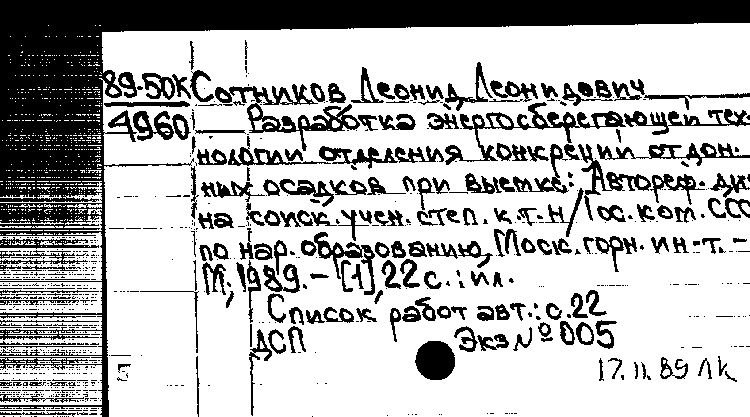 89-50К Сотников Леонид Леонидович
4960 Разработка энергосберегающей тех-
нологии отделения конкреций от дон-
ных осадков при выемке: Автореф. дис
на соиск. учен. степ. к.т.н / Гос. ком. ССС
по нар. образованию, Моск. горн. ин-т. -
М., 1989. - [1], 22 с. : ил.
Список работ авт.: с.22
ДСП Экз № 005
5 17.11.89 ЛК